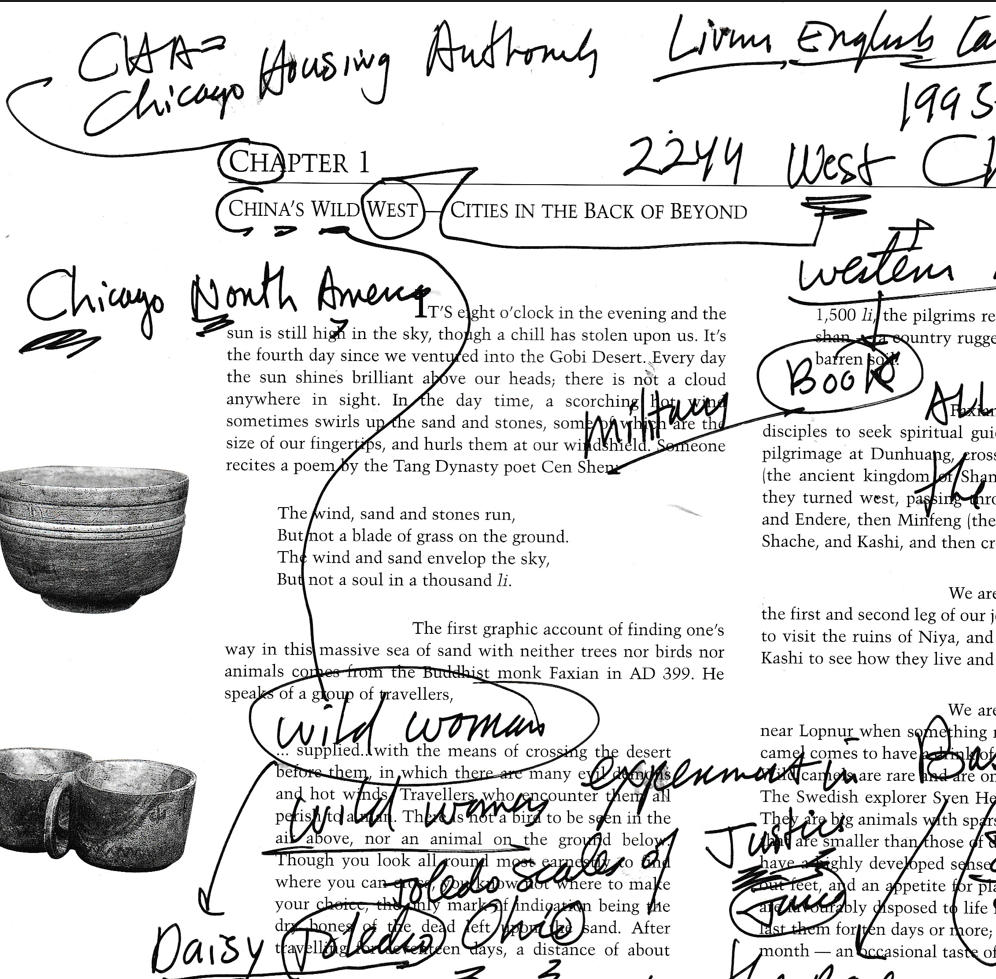 CHA=
Chicago Housing
Living English
1995
2244 West
CHAPTER 1
CHINA'S WILD WEST — CITIES IN THE BACK OF BEYOND
western
Chicago North
IT'S eight o'clock in the evening and the
sun is still high in the sky, though a chill has stolen upon us. It's
the fourth day since we ventured into the Gobi Desert. Every day
the sun shines brilliant above our heads; there is not a cloud
anywhere in sight. In the day time, a scorching hot wind
sometimes swirls up the sand and stones, some of which are the
size of our fingertips, and hurls them at our windshield. Someone
recites a poem by the Tang Dynasty poet Cen Shen:
Military
The wind, sand and stones run,
But not a blade of grass on the ground.
The wind and sand envelop the sky,
But not a soul in a thousand li.
The first graphic account of finding one's
way in this massive sea of sand with neither trees nor birds nor
animals comes from the Buddhist monk Faxian in AD 399. He
speaks of a group of travellers,
wild woman
... supplied with the means of crossing the desert
before them, in which there are many evil demons
and hot winds. Travellers who encounter them all
perish to a man. There is not a bird to be seen in the
air above, nor an animal on the ground below.
Though you look all round most earnestly to find
where you can cross, you know not where to make
your choice, the only mark of indication being the
dry bones of the dead left upon the sand. After
travelling for seventeen days, a distance of about
wild woman
experiment in
Toledo scales of
Daisy Toledo Ohio
1,500 li, the pilgrims
shan, a country
barren soil.
Book
Faxian
disciples to seek spiritual
pilgrimage at Dunhuang,
(the ancient kingdom of
the
they turned west, passing
and Endere, then Minfeng (the
Shache, and Kashi, and then
We are
the first and second leg of our
to visit the ruins of Niya, and
Kashi to see how they live and
We are
near Lopnur when something
camel comes to have a drink of
Wild camels are rare and are
The Swedish explorer Sven
They are big animals with
that are smaller than those of
have a highly developed sense
out feet, and an appetite for
are favourably disposed to life
last them for ten days or more;
month — an occasional taste of
Justus